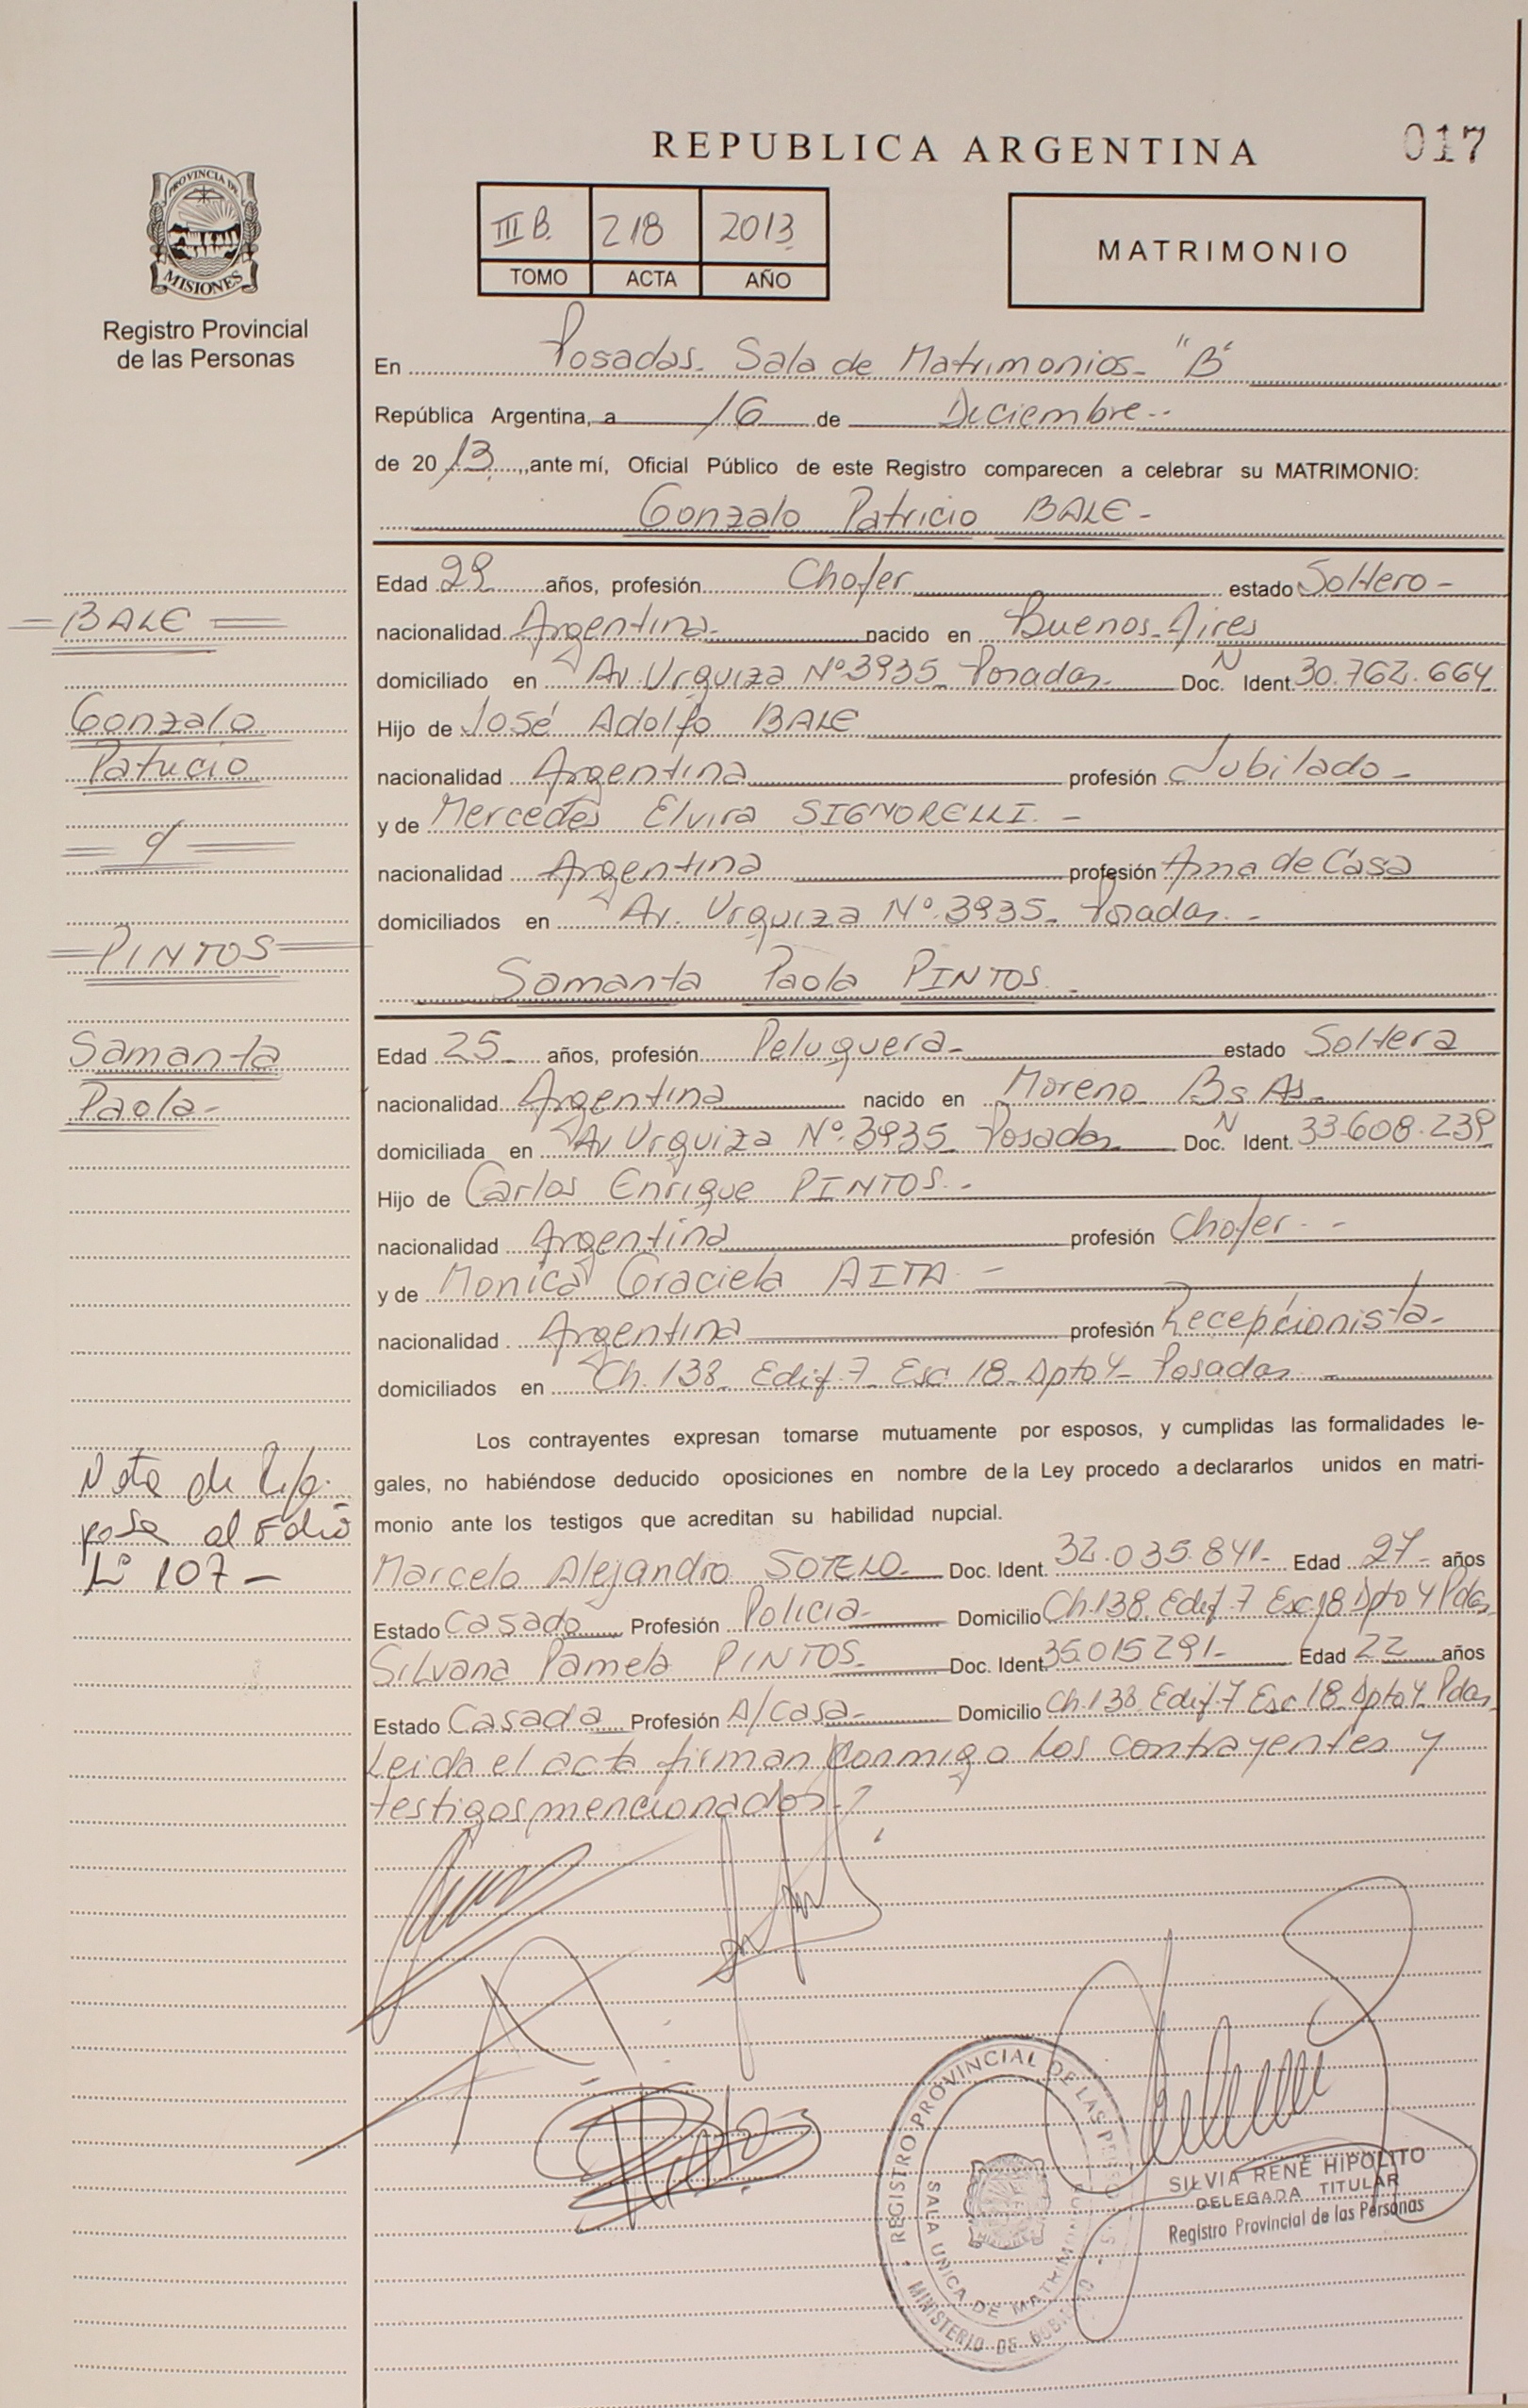 REPUBLICA ARGENTINA
017
PROVINCIA DE
MISIONES
Registro Provincial
de las Personas
III B. 218 2013
TOMO ACTA AÑO
MATRIMONIO
En Posadas- Sala de Matrimonios- "B"
República Argentina, a 16 de Diciembre--
de 2013, ante mí, Oficial Público de este Registro comparecen a celebrar su MATRIMONIO:
Gonzalo Patricio BALE-
Edad 29 años, profesión Chofer estado Soltero-
nacionalidad Argentina- nacido en Buenos Aires
domiciliado en Av. Urquiza Nº 3935- Posadas- Doc. N Ident. 30.762.664
Hijo de José Adolfo BALE
nacionalidad Argentina profesión Jubilado-
y de Mercedes Elvira SIGNORELLI.-
nacionalidad Argentina profesión Ama de Casa
domiciliados en Av. Urquiza Nº 3935- Posadas.-
Samanta Paola PINTOS.-
Edad 25- años, profesión Peluquera- estado Soltera
nacionalidad Argentina nacido en Moreno- Bs As-
domiciliada en Av Urquiza Nº 3935- Posadas- Doc. N Ident. 33.608.239
Hijo de Carlos Enrique PINTOS.-
nacionalidad Argentina profesión Chofer--
y de Monica Graciela AITA-
nacionalidad Argentina profesión Recepcionista-
domiciliados en Ch. 138- Edif. 7- Esc 18- Dpto 4- Posadas-
Los contrayentes expresan tomarse mutuamente por esposos, y cumplidas las formalidades le-
gales, no habiéndose deducido oposiciones en nombre de la Ley procedo a declararlos unidos en matri-
monio ante los testigos que acreditan su habilidad nupcial.
Marcelo Alejandro SOTELO- Doc. Ident. 32.035.841- Edad 27- años
Estado Casado Profesión Policia- Domicilio Ch.138 Edif. 7 Esc 18 Dpto 4 Pdas.
Silvana Pamela PINTOS- Doc. Ident 35.015291- Edad 22 años
Estado Casada Profesión A/casa- Domicilio Ch.138 Edif.7 Esc 18- Dpto 4- Pdas.
Leida el acta firman conmigo los contrayentes y
testigos mencionados-
BALE
Gonzalo
Patricio
y
PINTOS
Samanta
Paola-
Nota de
pasa al folio
Lº 107-
REGISTRO PROVINCIAL DE LAS PERSONAS
SALA UNICA DE MATRIMONIOS
MINISTERIO DE GOBIERNO
SILVIA RENE HIPOLITO
DELEGADA TITULAR
Registro Provincial de las Personas